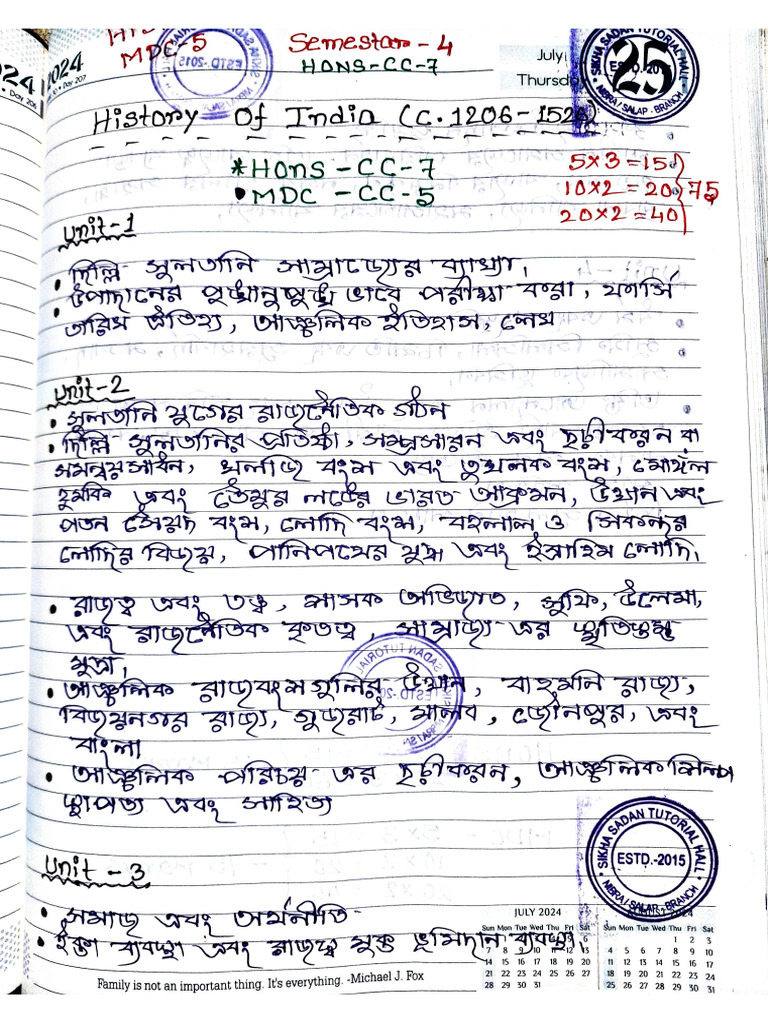 2024
Day 206
2024
Day 207
MDC-5
Semestar - 4
HONS-CC-7
July
Thursday
25
SIKHA SADAN TUTORIAL HALL
NIBRA/SALAP-BRANCH
ESTD.-2015
History Of India (C.1206-1526)
*HONS - CC-7
•MDC - CC-5
5×3=15
10×2=20
20×2=40
75
Unit-1
• দিল্লি সুলতানি সাম্রাজ্যের ব্যাখ্যা,
• উপাদানের পুঙ্খানুপুঙ্খ ভাবে পরীক্ষা করা, ফার্সি
তারিখ ঐতিহ্য, আঞ্চলিক ইতিহাস, লেখ
Unit-2
• সুলতানি যুগের রাজনৈতিক গঠন
• দিল্লি সুলতানির প্রতিষ্ঠা, সম্প্রসারন এবং দৃঢ়ীকরন বা
সমন্বয়সাধন, খলজি বংশ এবং তুঘলক বংশ, মোঙ্গল
হুমকি এবং তৈমুর লঙ্গের ভারত আক্রমন, উত্থান এবং
পতন সৈয়দ বংশ, লোদি বংশ, বহলাল ও সিকন্দর
লোদির বিজয়, পানিপথের যুদ্ধ এবং ইব্রাহিম লোদি,
• রাজত্ব এবং তত্ত্ব, শাসক অভিজাত, সুফি, উলেমা,
এবং রাজনৈতিক কৃতত্ব, সাম্রাজ্য এর স্মৃতিস্তম্ভ
মুদ্রা,
• আঞ্চলিক রাজবংশগুলির উত্থান, বাহমনি রাজ্য,
বিজয়নগর রাজ্য, গুজরাট, মালব, জৌনপুর, এবং
বাংলা
• আঞ্চলিক পরিচয় এর দৃঢ়ীকরন, আঞ্চলিক শিল্প
স্থাপত্য এবং সাহিত্য
SIKHA SADAN TUTORIAL HALL
ESTD.-2015
NIBRA/SALAP-BRANCH
Unit - 3
• সমাজ এবং অর্থনীতি
• ইক্তা ব্যবস্থা এবং রাজস্ব মুক্ত ভূমিদান ব্যবস্থা,
JULY 2024
Sun Mon Tue Wed Thu Fri Sat
14 15 16 17 18 19 20
21 22 23 24 25 26 27
28 29 30 31
Sun Mon Tue Wed Thu Fri Sat
1 2 3
4 5 6 7 8 9 10
11 12 13 14 15 16 17
18 19 20 21 22 23 24
25 26 27 28 29 30 31
Family is not an important thing. It's everything. -Michael J. Fox